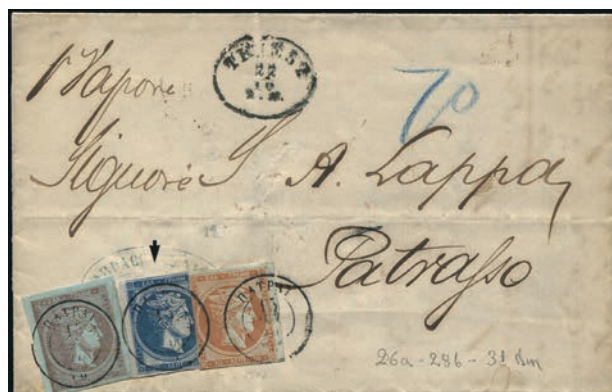 TRIEST
22
10
p Vapore
70
Signore S. A. Lappa
Patrasso
ΠΑΤΡΑΙ
ΠΑΤΡΑΙ
ΠΑΤΡΑΙ
26a - 29b - 31 Bm